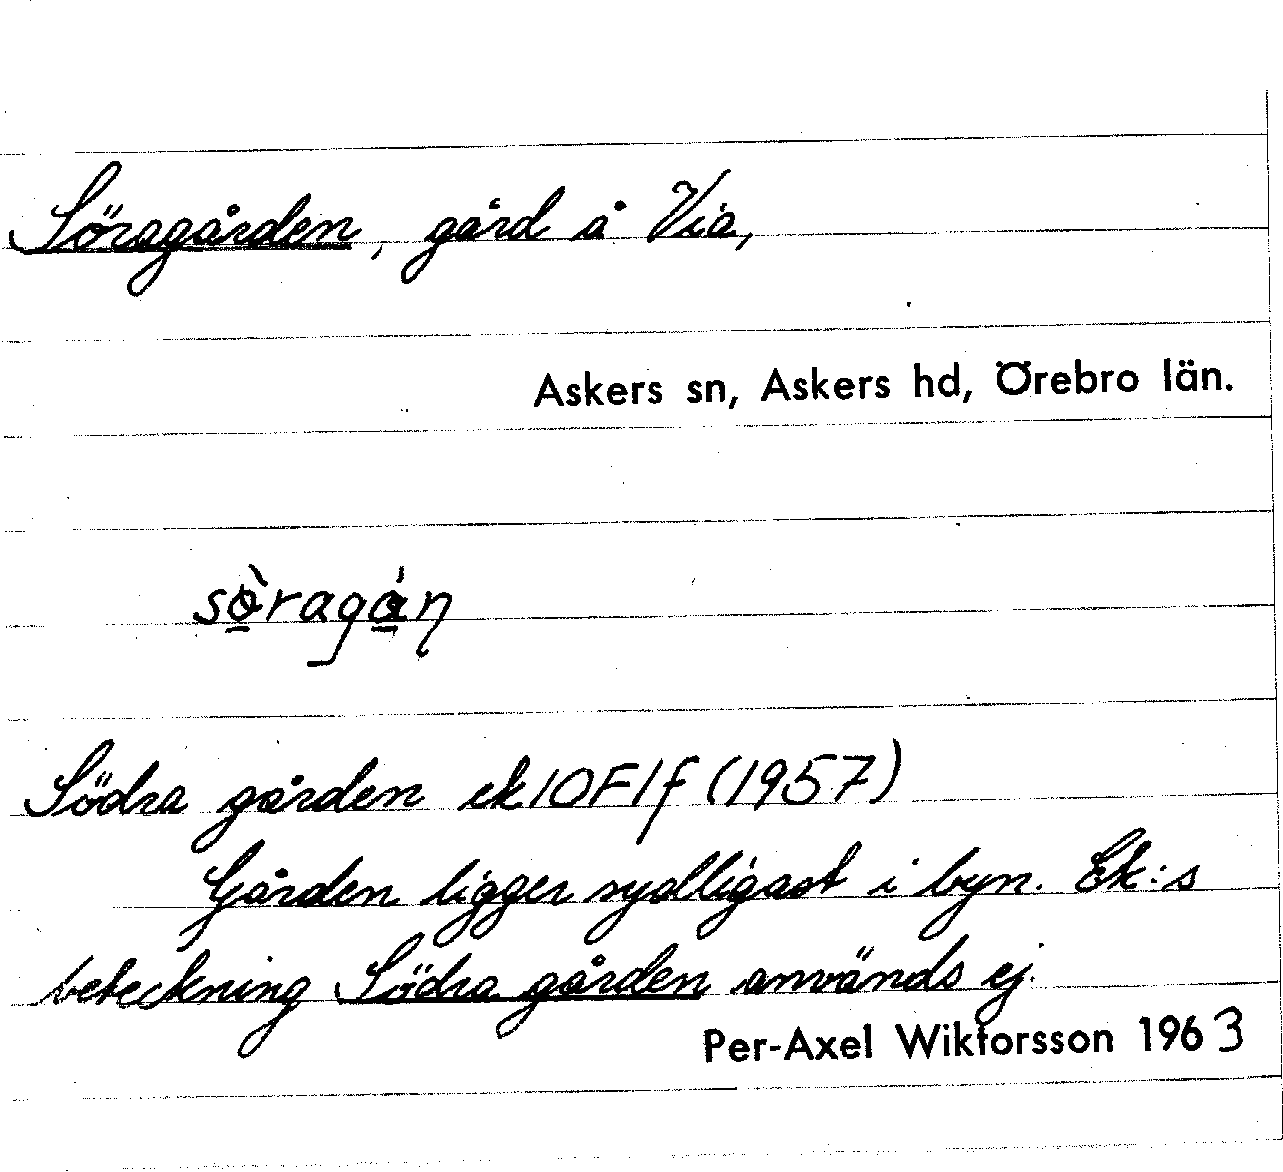 Söragården, gård å Via,
Askers sn, Askers hd, Örebro län.
sö̀ragán
Södra gården ek 10F1f (1957)
Gården ligger sydligast i byn. Ek:s
beteckning Södra gården används ej.
Per-Axel Wiktorsson 1963